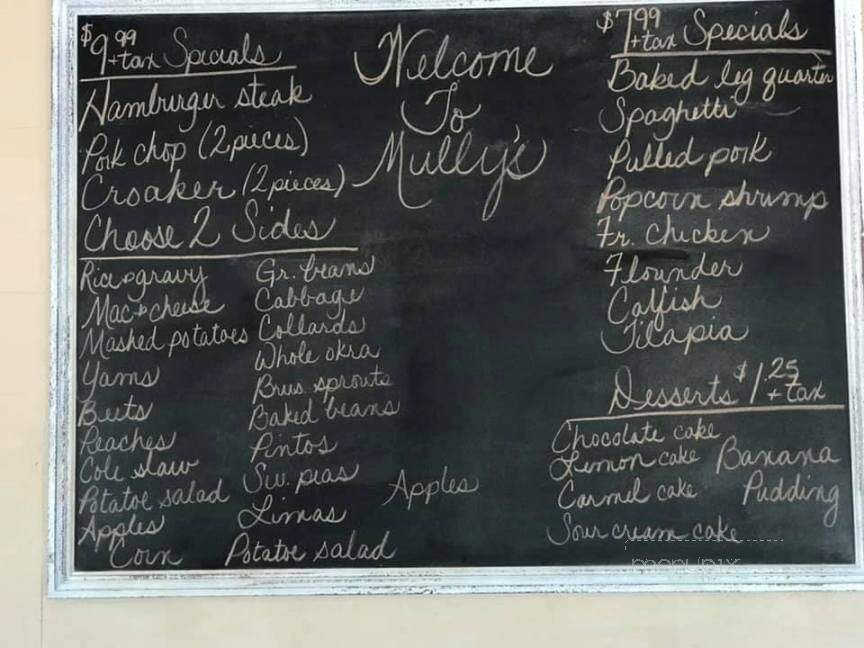 $9.99 +tax Specials
Hamburger steak
Pork chop (2 pieces)
Croaker (2 pieces)
Choose 2 Sides
Rice + gravy
Mac + cheese
Mashed potatoes
Yams
Beets
Peaches
Cole slaw
Potatoe salad
Apples
Corn
Gr. beans
Cabbage
Collards
Whole okra
Brus. sprouts
Baked beans
Pintos
Sw. peas
Limas
Potatoe salad
Apples
Welcome
To
Mully's
$7.99 +tax Specials
Baked leg quarter
Spaghetti
Pulled pork
Popcorn shrimp
Fr. chicken
Flounder
Catfish
Tilapia
Desserts $1.25 + tax
Chocolate cake
Lemon cake
Carmel cake
Sour cream cake
Banana
Pudding
menupix